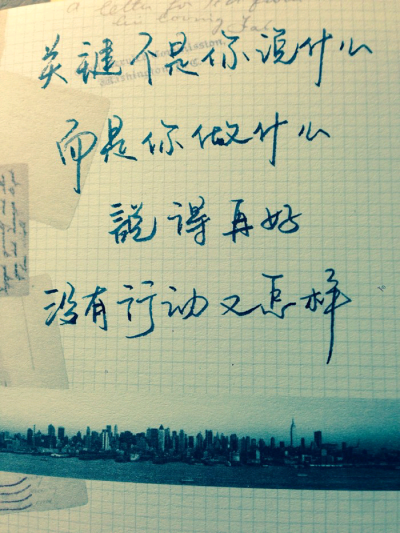 a letter for
in loving
关键不是你说什么
而是你做什么
說得再好
没有行动又怎样